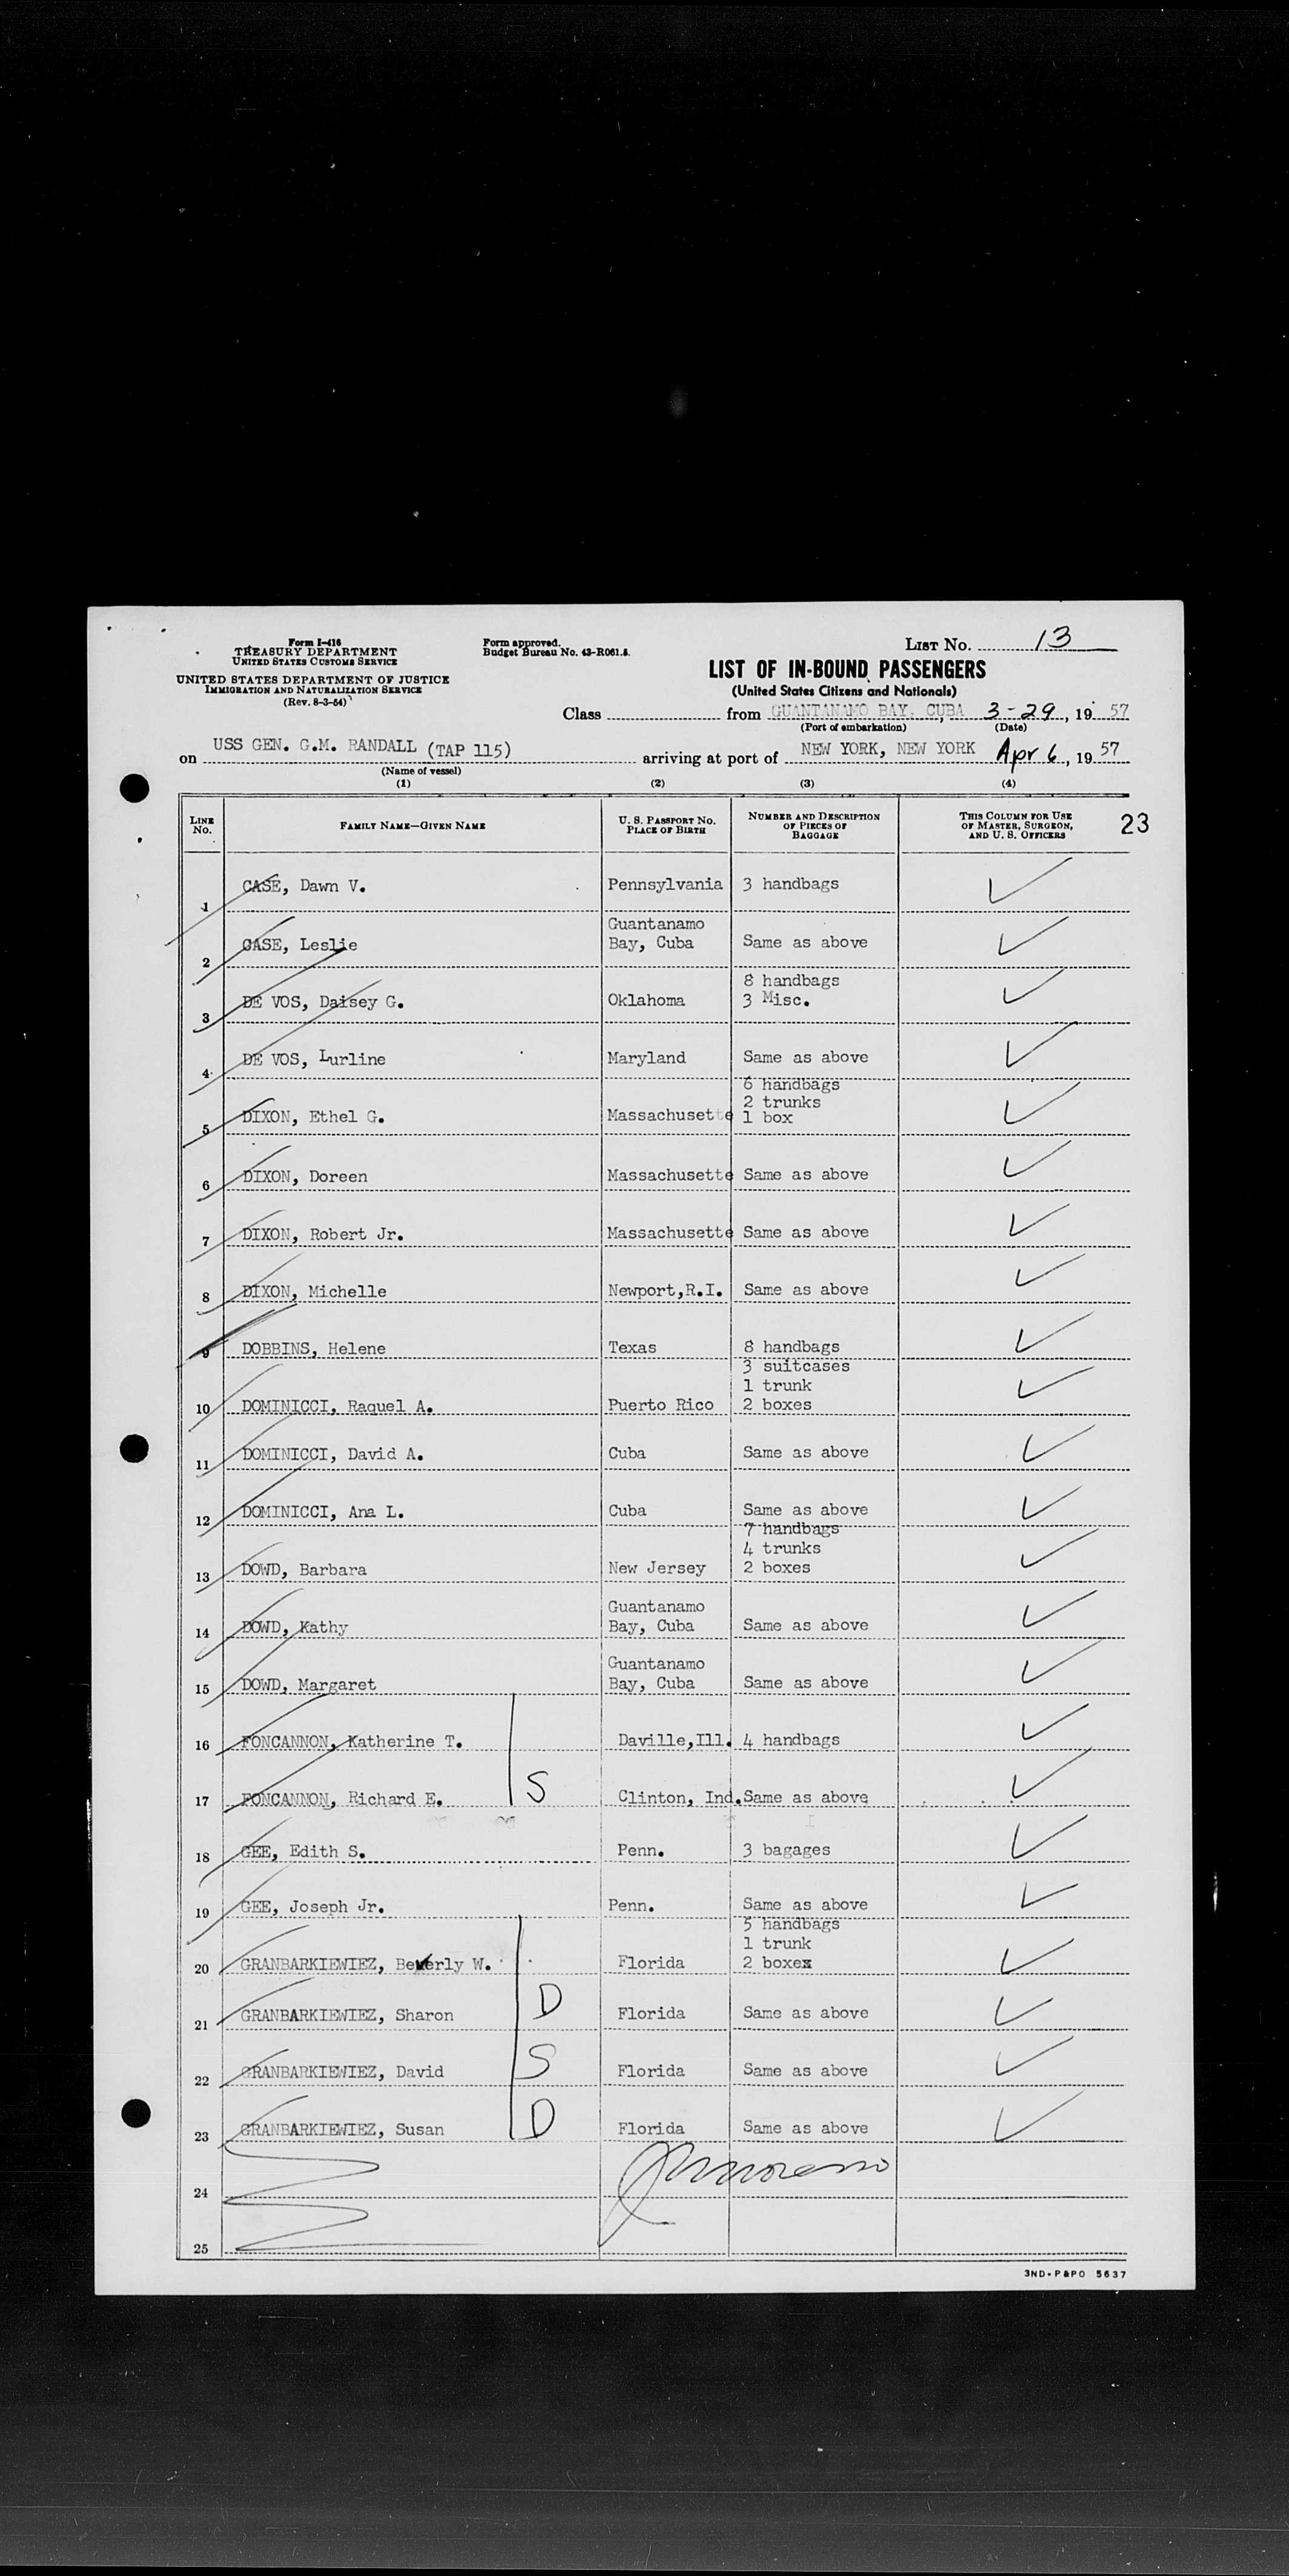 Form I-416
TREASURY DEPARTMENT
UNITED STATES CUSTOMS SERVICE
UNITED STATES DEPARTMENT OF JUSTICE
IMMIGRATION AND NATURALIZATION SERVICE
(Rev. 8-3-54)
Form approved.
Budget Bureau No. 43-R061.8.
LIST No. 13
LIST OF IN-BOUND PASSENGERS
(United States Citizens and Nationals)
Class from GUANTANAMO BAY, CUBA, 3-29, 19 57
(Port of embarkation) (Date)
on USS GEN. G.M. RANDALL (TAP 115) arriving at port of NEW YORK, NEW YORK Apr 6, 19 57
(Name of vessel)
(1) (2) (3) (4)
LINE No. FAMILY NAME—GIVEN NAME U. S. PASSPORT NO. PLACE OF BIRTH NUMBER AND DESCRIPTION OF PIECES OF BAGGAGE THIS COLUMN FOR USE OF MASTER, SURGEON, AND U. S. OFFICERS 23
1 CASE, Dawn V. Pennsylvania 3 handbags
2 CASE, Leslie Guantanamo Bay, Cuba Same as above
3 DE VOS, Daisey G. Oklahoma 8 handbags 3 Misc.
4 DE VOS, Lurline Maryland Same as above
5 DIXON, Ethel G. Massachusette 6 handbags 2 trunks 1 box
6 DIXON, Doreen Massachusette Same as above
7 DIXON, Robert Jr. Massachusette Same as above
8 DIXON, Michelle Newport,R.I. Same as above
9 DOBBINS, Helene Texas 8 handbags
10 DOMINICCI, Raquel A. Puerto Rico 3 suitcases 1 trunk 2 boxes
11 DOMINICCI, David A. Cuba Same as above
12 DOMINICCI, Ana L. Cuba Same as above
13 DOWD, Barbara New Jersey 7 handbags 4 trunks 2 boxes
14 DOWD, Kathy Guantanamo Bay, Cuba Same as above
15 DOWD, Margaret Guantanamo Bay, Cuba Same as above
16 FONCANNON, Katherine T. Daville,Ill. 4 handbags
17 FONCANNON, Richard E. S Clinton, Ind. Same as above
18 GEE, Edith S. Penn. 3 bagages
19 GEE, Joseph Jr. Penn. Same as above
20 GRANBARKIEWIEZ, Beverly W. Florida 5 handbags 1 trunk 2 boxex
21 GRANBARKIEWIEZ, Sharon D Florida Same as above
22 GRANBARKIEWIEZ, David S Florida Same as above
23 GRANBARKIEWIEZ, Susan D Florida Same as above
24
25
3ND-P&PO 5637